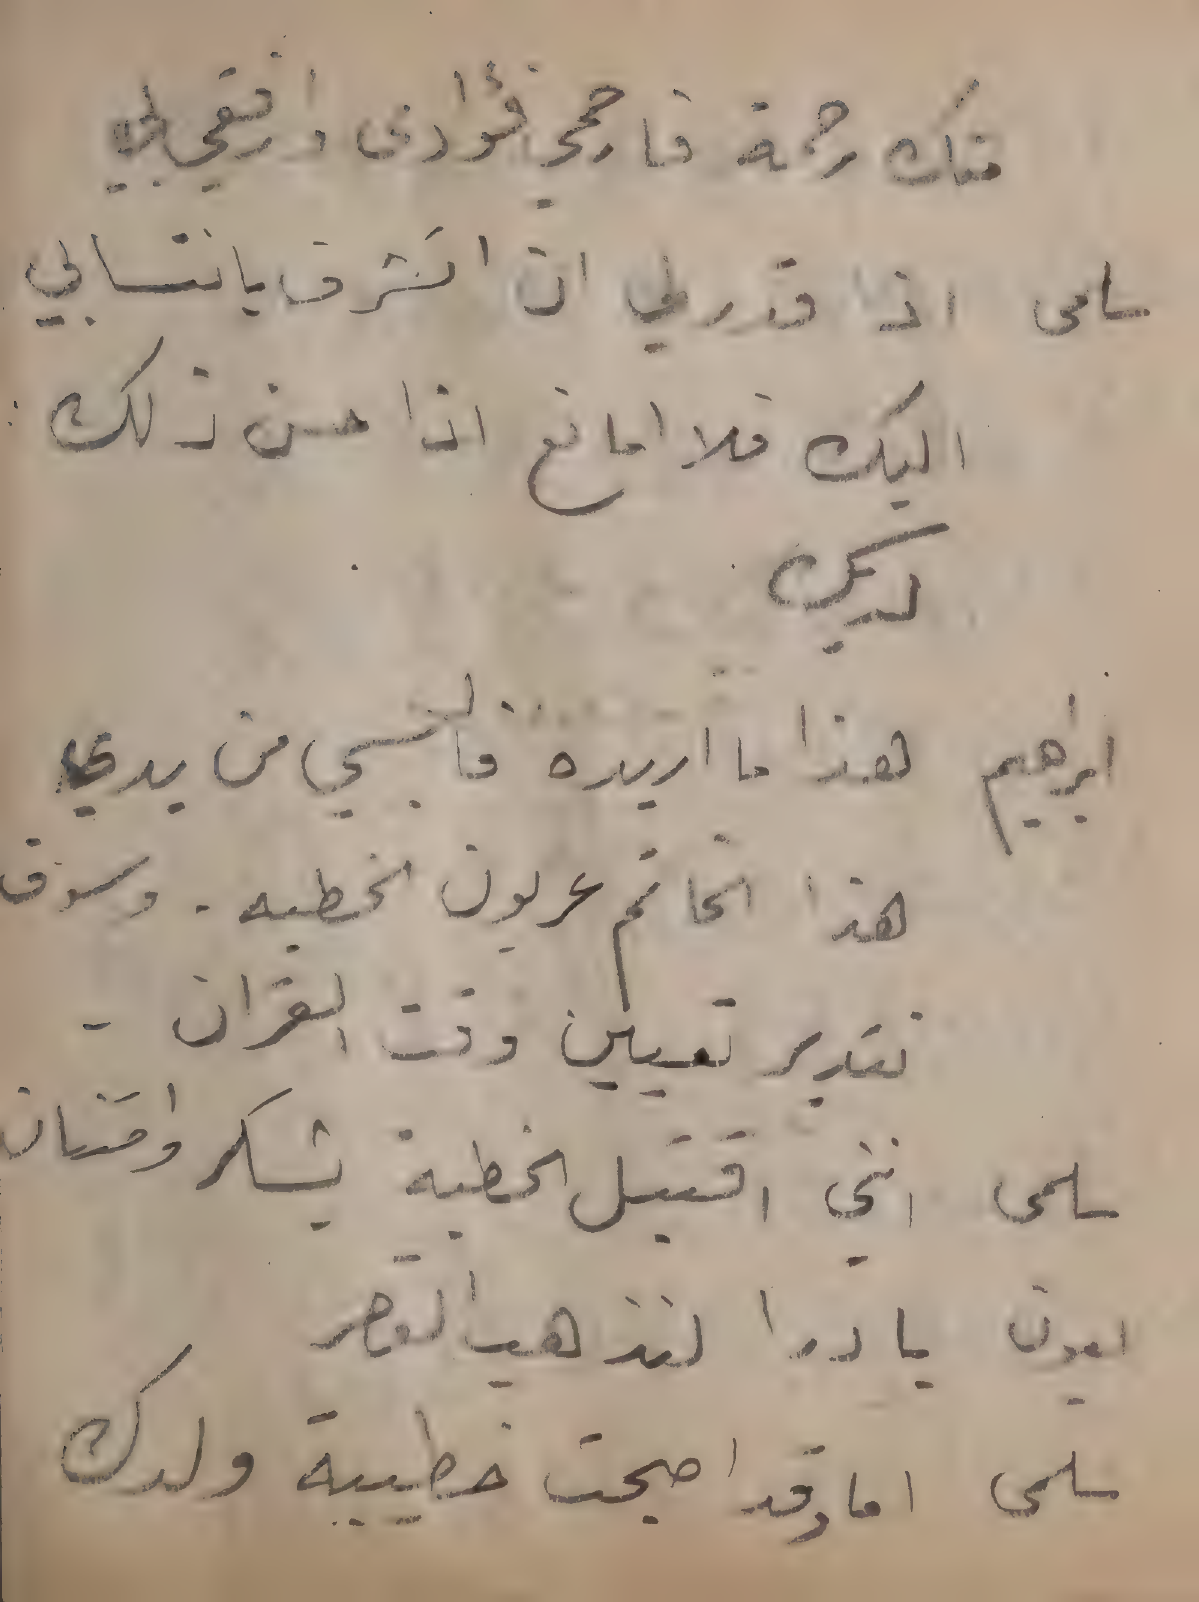 منك رحمة فارحمي فؤادى وارفقي بي
سلمى اذا قدر لي ان اتشرف بانتسابي
اليك فلا امانع اذا حسن ذلك
لديك
ابرهيم هذا ما اريده فالبسي من يدي
هذا الخاتم عربون الخطبه - وسوف
نتدبر تعيين وقت القران -
سلمى انني اقتبل الخطبة بشكر وامتنان
ليون يا درا لنذهب القصر
سلمى اما وقد اصبحت خطيبة ولدك